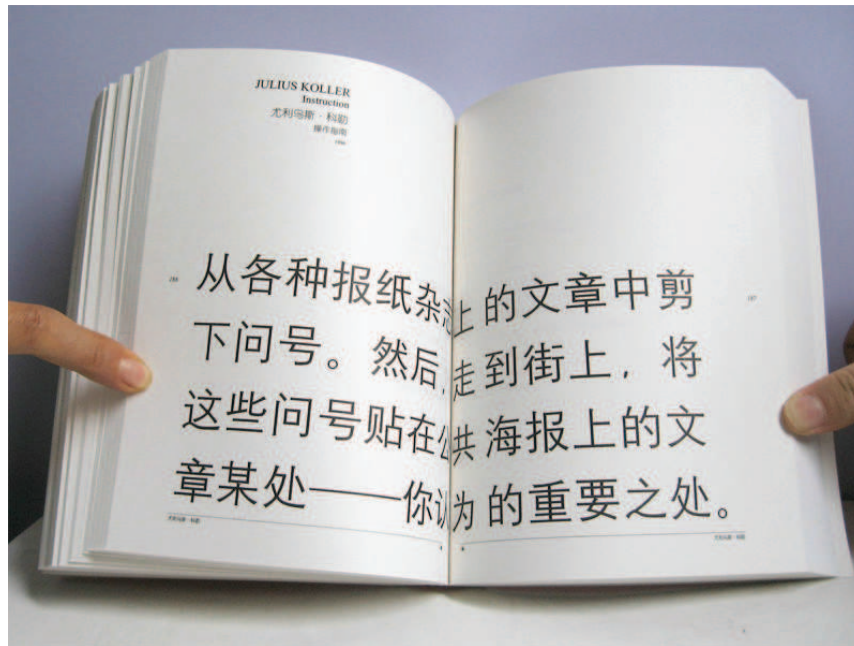 JULIUS KOLLER
Instruction
尤利乌斯·科勒
操作指南
从各种报纸杂志上的文章中剪
下问号。然后,走到街上,将
这些问号贴在公共海报上的文
章某处——你认为的重要之处。
尤利乌斯·科勒